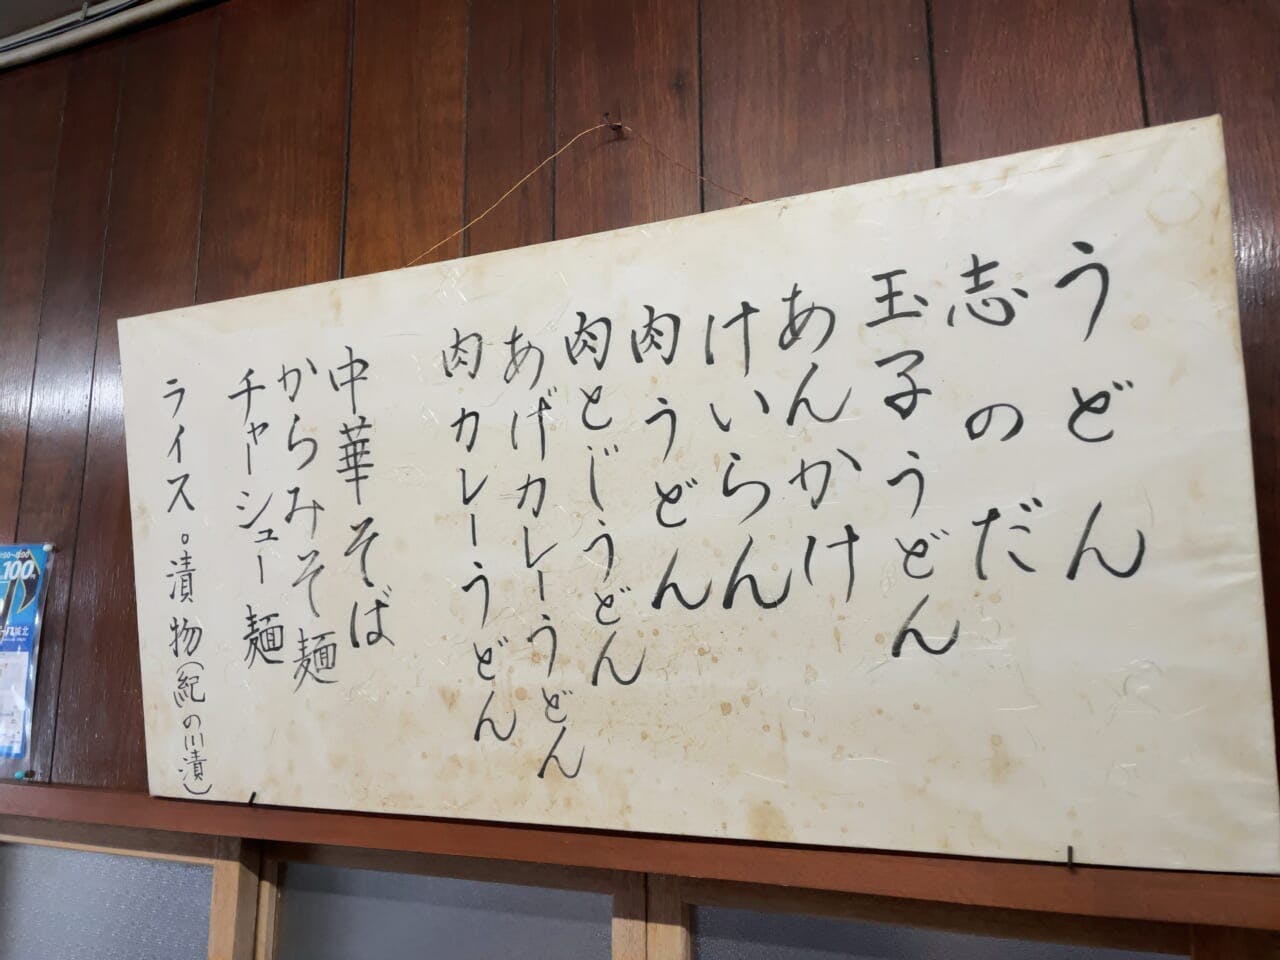 うどん
志のだ
玉子うどん
あんかけ
けいらん
肉うどん
肉とじうどん
あげカレーうどん
肉カレーうどん
中華そば
からみそ麺
チャーシュー麺
ライス。漬物(紀の川漬)
100
城北